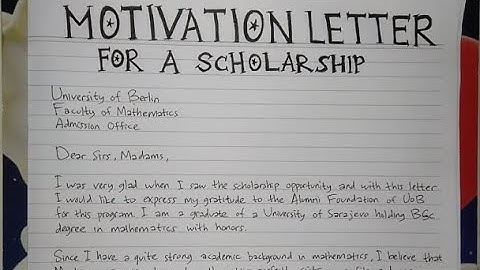 MOTIVATION LETTER
FOR A SCHOLARSHIP
University of Berlin
Faculty of Mathematics
Admission Office
Dear Sirs, Madams,
I was very glad when I saw the scholarship opportunity and with this letter
I would like to express my gratitude to the Alumni Foundation of UoB
for this program. I am a graduate of a University of Sarajevo holding BSc
degree in mathematics with honors.
Since I have a quite strong academic background in mathematics, I believe that